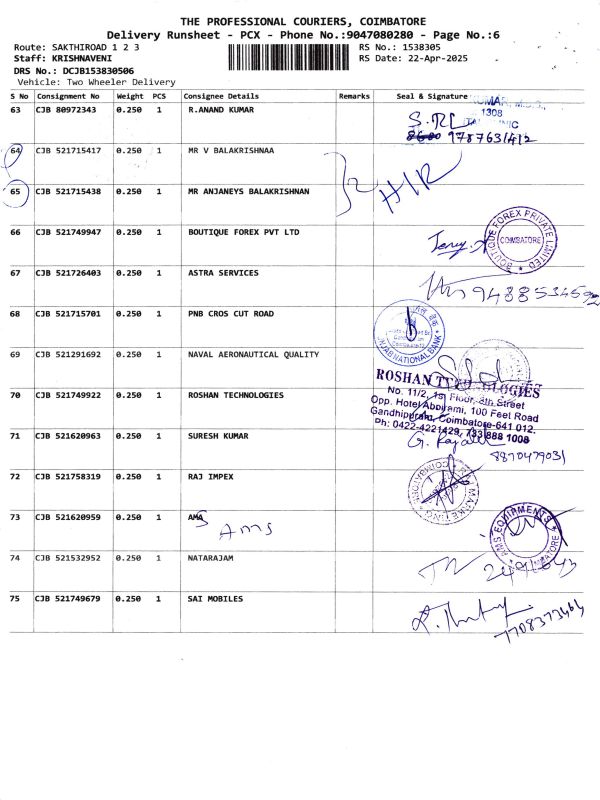 THE PROFESSIONAL COURIERS, COIMBATORE
Delivery Runsheet - PCX - Phone No.:9047080280 - Page No.:6
Route: SAKTHIROAD 1 2 3
RS No.: 1538305
Staff: KRISHNAVENI
RS Date: 22-Apr-2025
DRS No.: DCJB153830506
Vehicle: Two Wheeler Delivery
S No Consignment No Weight PCS Consignee Details Remarks Seal & Signature
63 CJB 80972343 0.250 1 R.ANAND KUMAR
1308
9787631412
64 CJB 521715417 0.250 1 MR V BALAKRISHNAA
65 CJB 521715438 0.250 1 MR ANJANEYS BALAKRISHNAN
66 CJB 521749947 0.250 1 BOUTIQUE FOREX PVT LTD
BOUTIQUE FOREX PRIVATE LIMITED
COIMBATORE
67 CJB 521726403 0.250 1 ASTRA SERVICES
9488534592
68 CJB 521715701 0.250 1 PNB CROS CUT ROAD
NATIONAL BANK
69 CJB 521291692 0.250 1 NAVAL AERONAUTICAL QUALITY
70 CJB 521749922 0.250 1 ROSHAN TECHNOLOGIES
ROSHAN TECHNOLOGIES
No. 11/2, 1st Floor, 8th Street
Opp. Hotel Abirami, 100 Feet Road
Gandhipuram, Coimbatore-641 012.
Ph: 0422-4221429, 733 888 1008
71 CJB 521620963 0.250 1 SURESH KUMAR
8870479031
72 CJB 521758319 0.250 1 RAJ IMPEX
MARKETING
73 CJB 521620959 0.250 1 AMA
S
AMS
AMS EQUIPMENTS
74 CJB 521532952 0.250 1 NATARAJAM
75 CJB 521749679 0.250 1 SAI MOBILES
7708373464